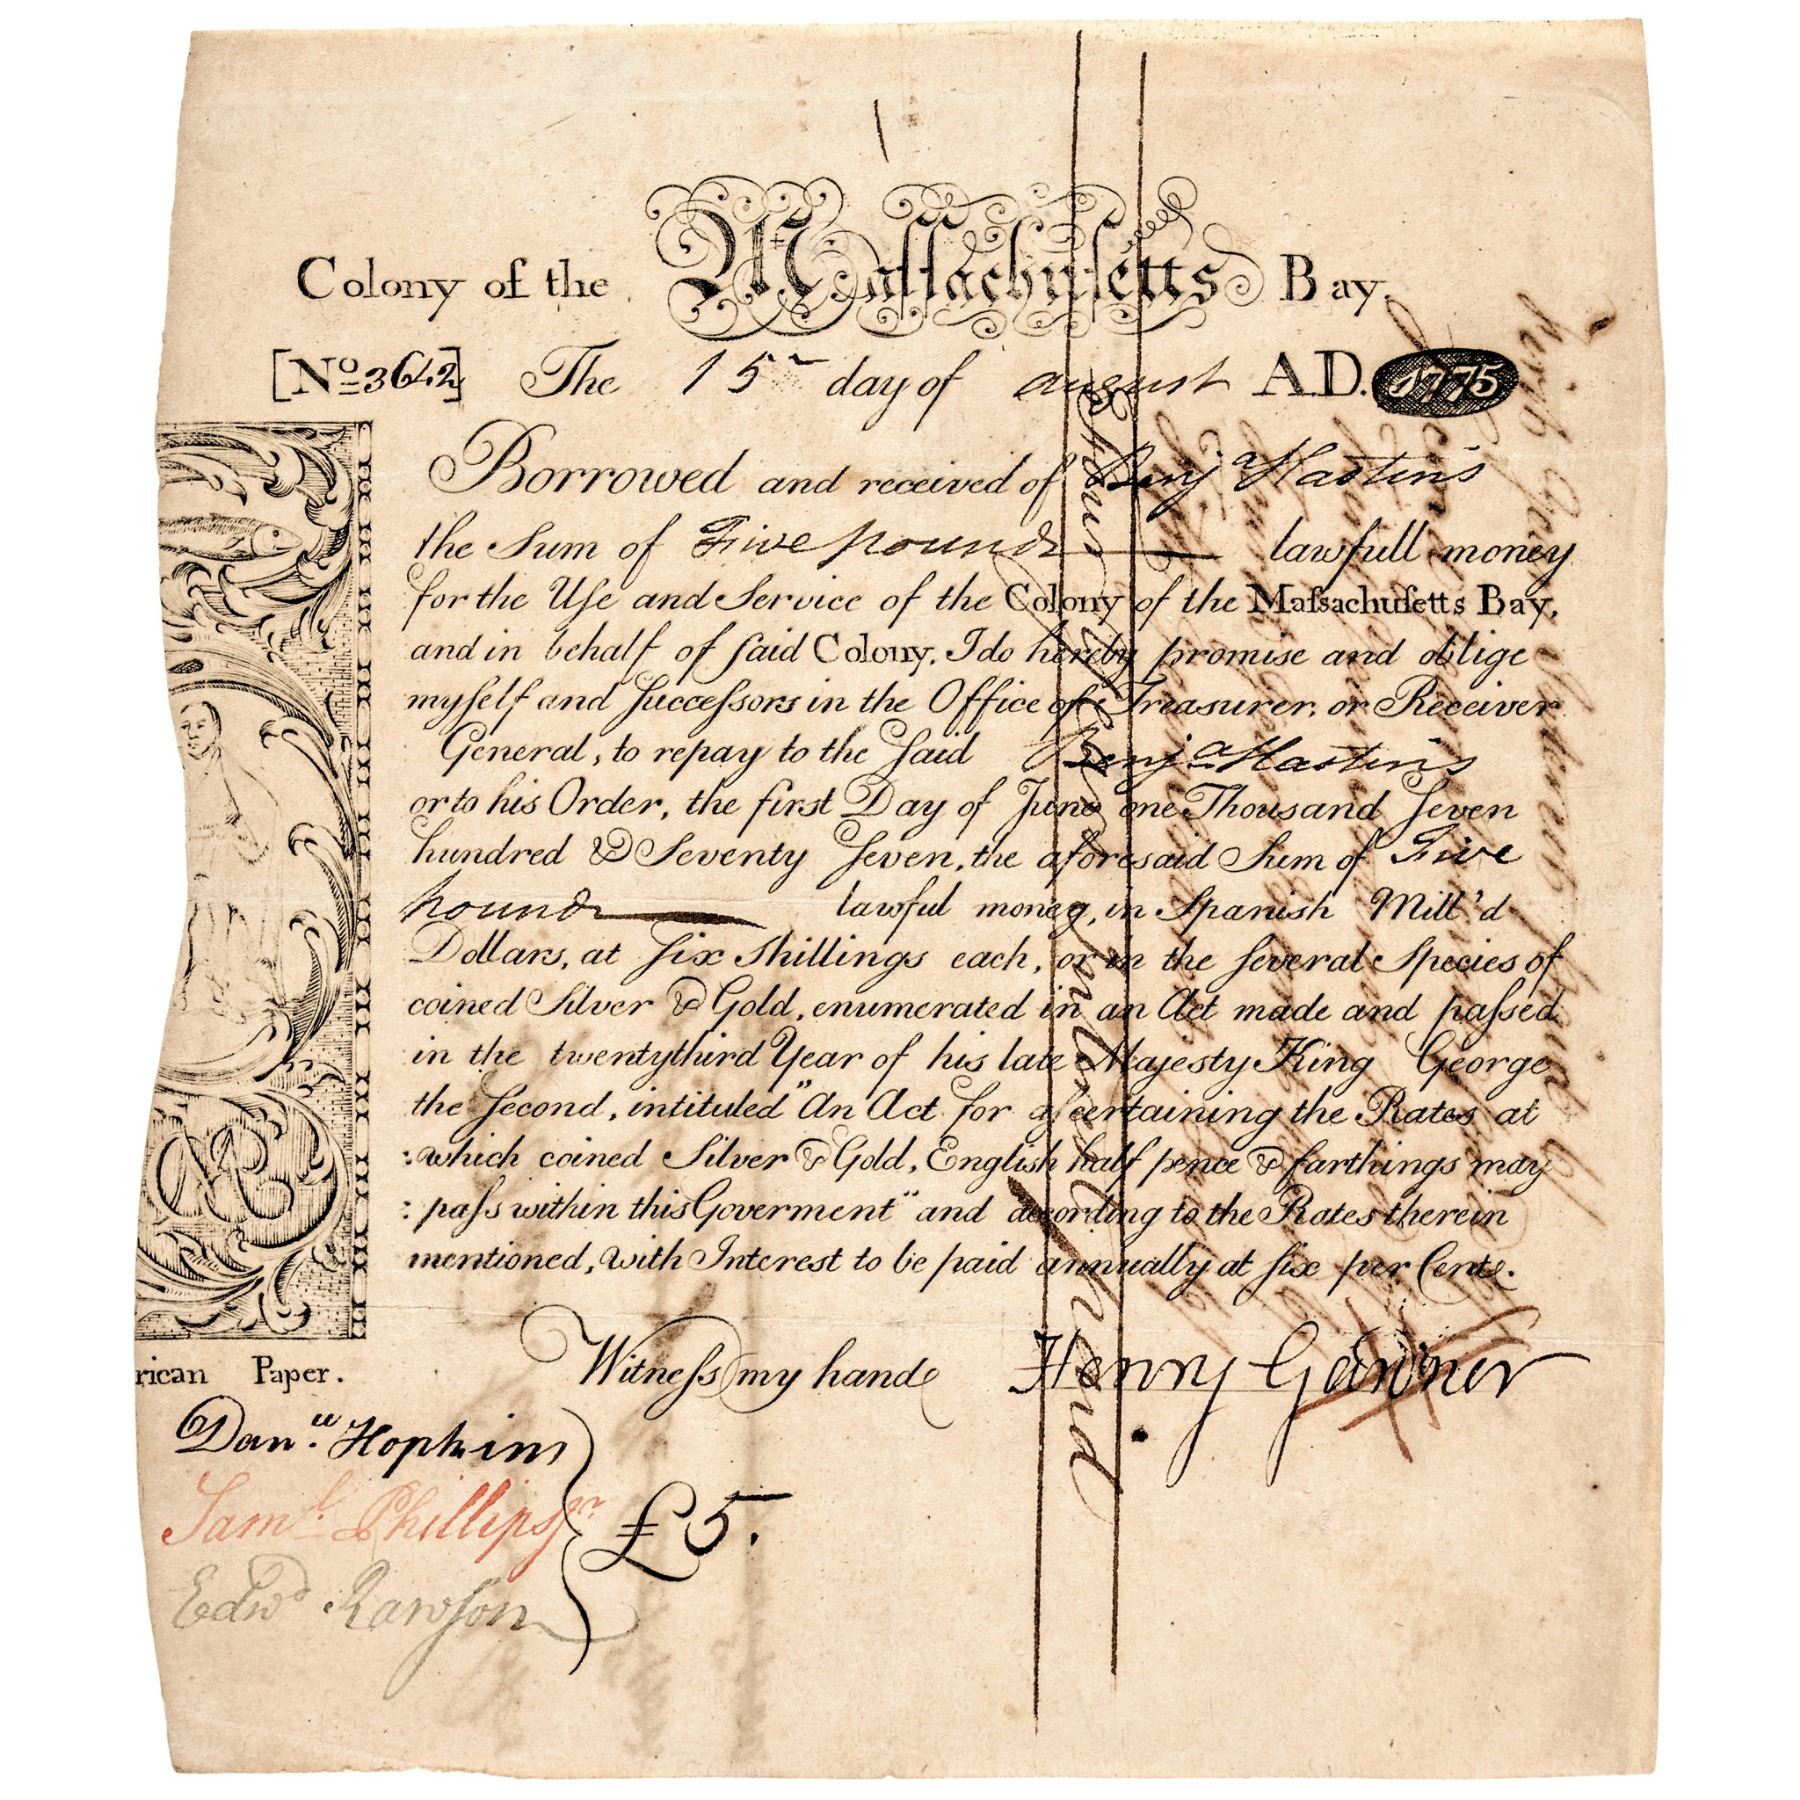 Colony of the Maſſachuſetts Bay.
[No 3642] The 15 day of august A.D. 1775
Borrowed and received of Benj a Hastins
the Sum of Five pounds lawfull money
for the Uſe and Service of the Colony of the Maſsachuſetts Bay,
and in behalf of ſaid Colony. I do hereby promise and oblige
myſelf and ſucceſsors in the Office of Treasurer, or Receiver
General, to repay to the ſaid Benj a Hastins
or to his Order, the first Day of June one Thousand ſeven
hundred & Seventy ſeven, the aforesaid Sum of Five
pounds lawful money, in Spanish Mill'd
Dollars, at ſix Shillings each, or in the ſeveral Species of
coined Silver & Gold, enumerated in an Act made and paſsed
in the twentythird Year of his late Majesty King George
the ſecond, intituled "An Act for aſcertaining the Rates at
:which coined Silver & Gold, English half pence & farthings may
: paſs within this Goverment" and according to the Rates therein
mentioned, with Interest to be paid annually at ſix per Cent.
Witneſs my hand Henry Gardner
rican Paper.
Dan.ll Hopkins
Sam.l Phillips jr
Edwd Rawſon
£5.